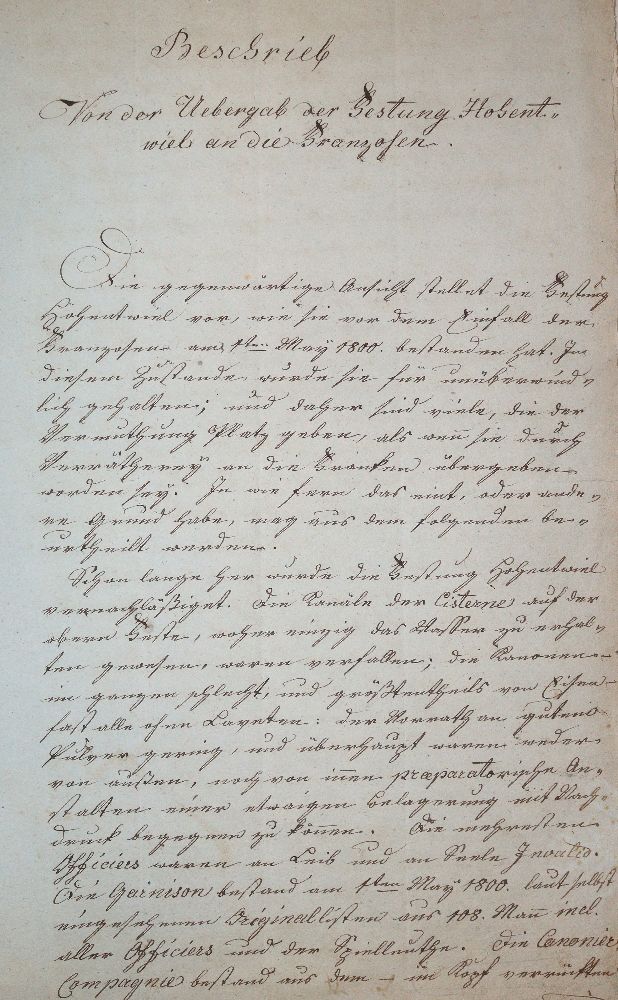 Beschrieb
Von der Uebergab der Vestung Hohent„
wiel an die Franzosen.
Die gegenwärtige Ansicht stellet die Vestung
Hohentwiel vor, wie sie vor dem Einfall der
Franzosen am 1ten May 1800. bestanden hat. In
diesem Zustande wurde sie für unüberwind„
lich gehalten; und daher sind viele, die der
Vermuthung Platz geben, als wenn sie durch
Verrätherey an die Franken übergeben
worden sey. In wie fern das eint, oder ande„
re Grund habe, mag aus dem folgenden be„
urtheilt werden.
Schon lange her wurde die Vestung Hohentwiel
vernachläßiget. Die Kanäle der Cisterne auf der
obern Veste, woher einzig das Wasser zu erhal„
ten gewesen, waren verfallen; die Kanonen
im ganzen schlecht, und größtentheils von Eisen
fast alle ohne Laveten: der Vorrath an gutem
Pulver gering, und überhaupt waren weder
von außen, noch von innen præparatorische An„
stalten einer etwaigen Belagerung mit Nach„
druck begegnen zu können. Die mehresten
Officiers waren an Leib und an Seele Invalid.
Die Garnison bestand am 1ten May 1800. laut selbst
eingesehenen Originallisten aus 108. Mann incl.
aller Officiers und der Spielleuthe. Die Canonier
Compagnie bestand aus dem – im Kopf verrückten